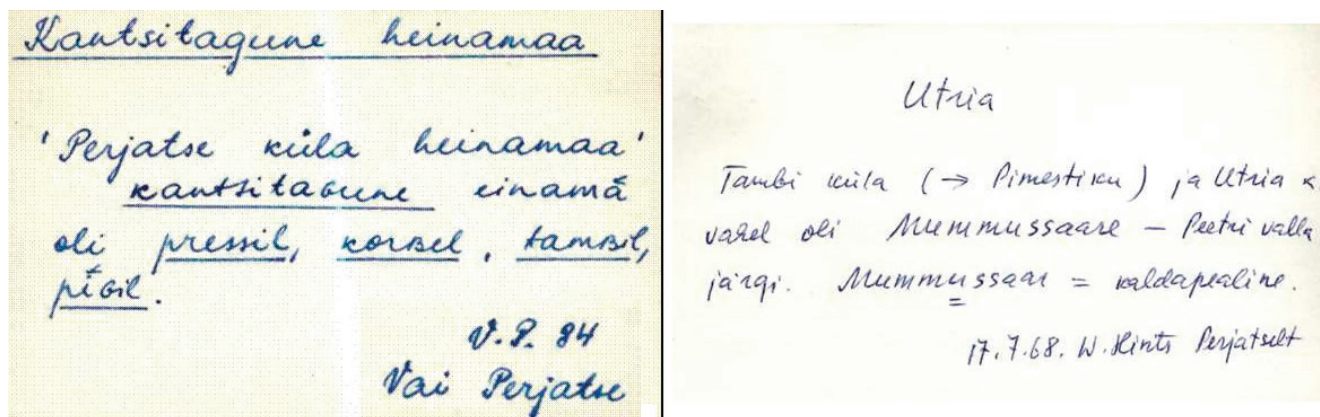 Kantsitagune heinamaa
'Perjatse küla heinamaa'
kantsitaGune einamā
oli pressil, korBel, tamBil,
pīGil.
V.P. 84
Vai Perjatse
Utria
Tambi küla (→ Pimestiku) ja Utria k.
vahel oli Mummussaare – Peetri valla
järgi. Mummussaar = kaldapealine.
17.7.68. W. Hints Perjatselt